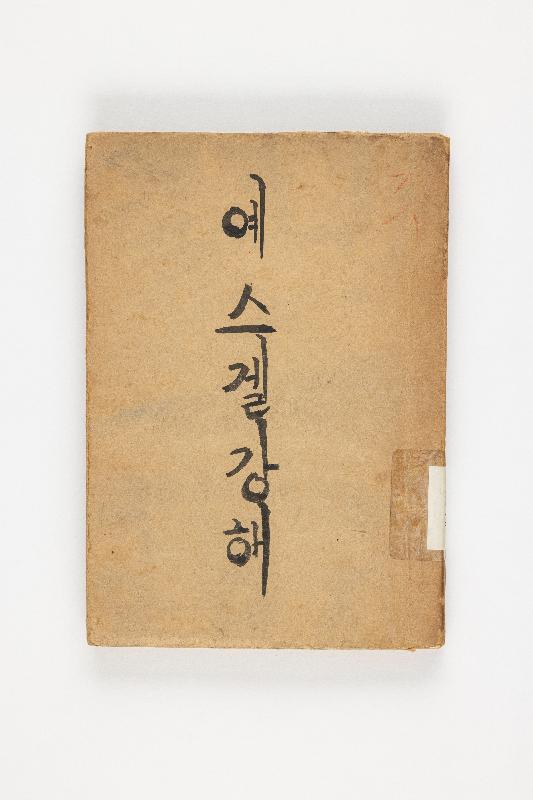 예스겔강해